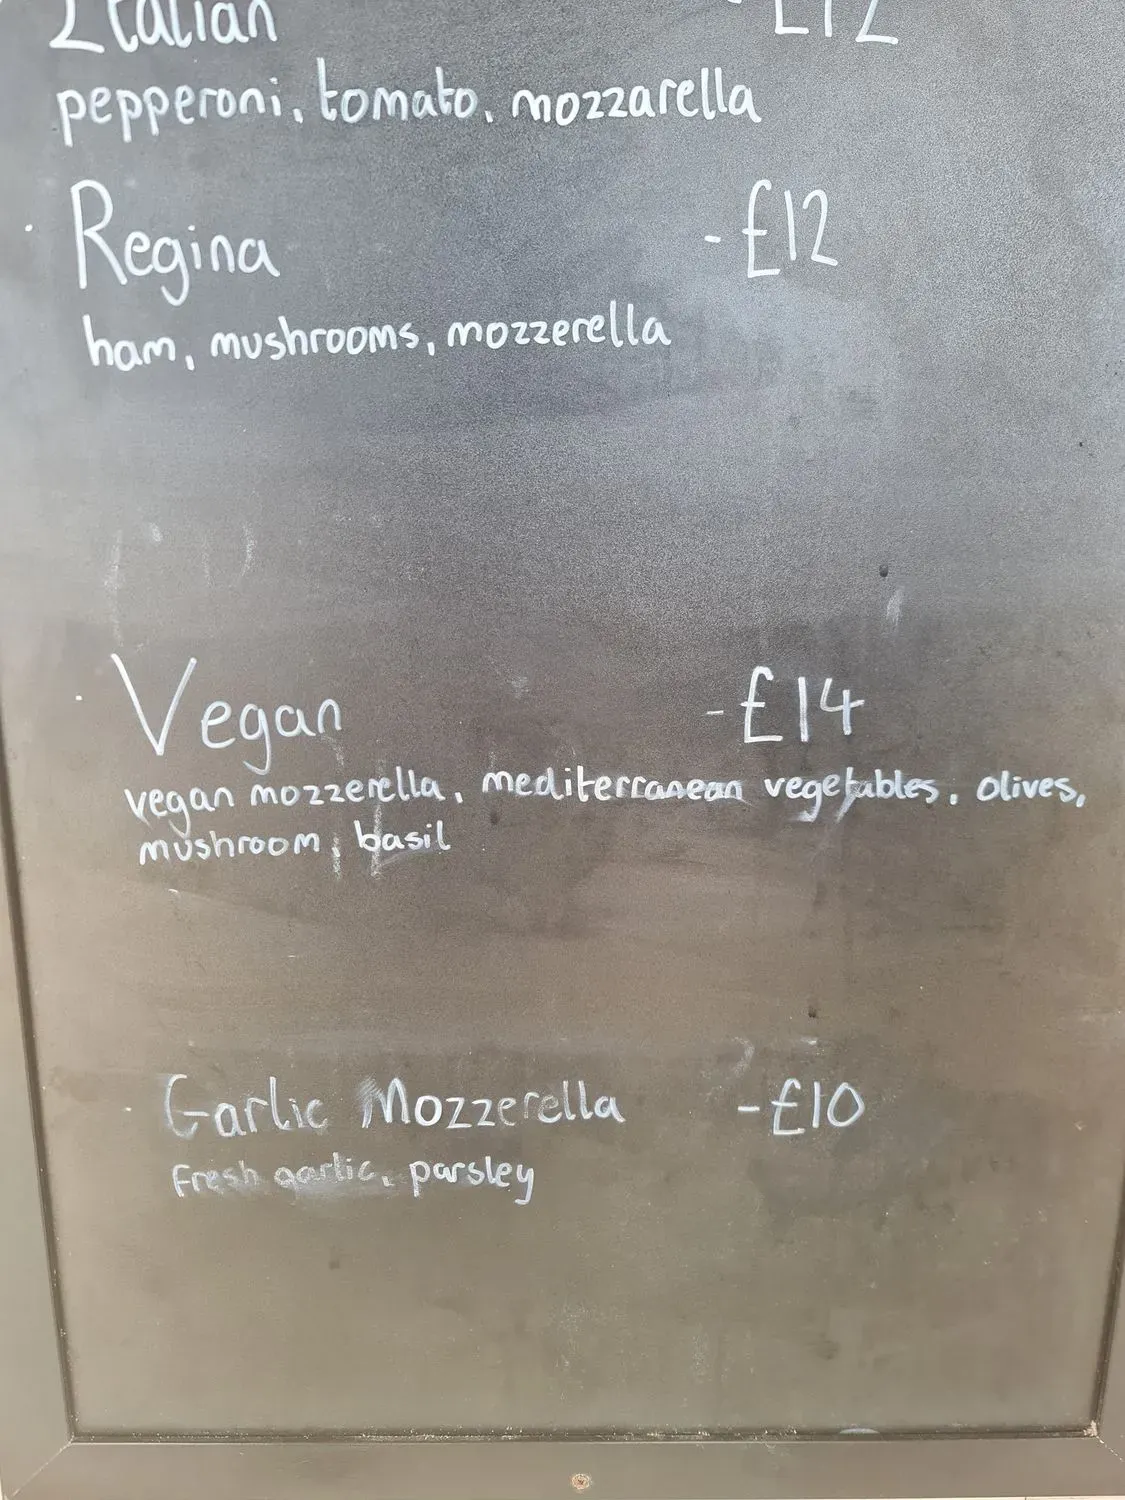 Italian - £12
pepperoni, tomato, mozzarella
Regina - £12
ham, mushrooms, mozzerella
Vegan - £14
vegan mozzerella, mediterranean vegetables, olives,
mushroom, basil
Garlic Mozzerella - £10
Fresh garlic, parsley